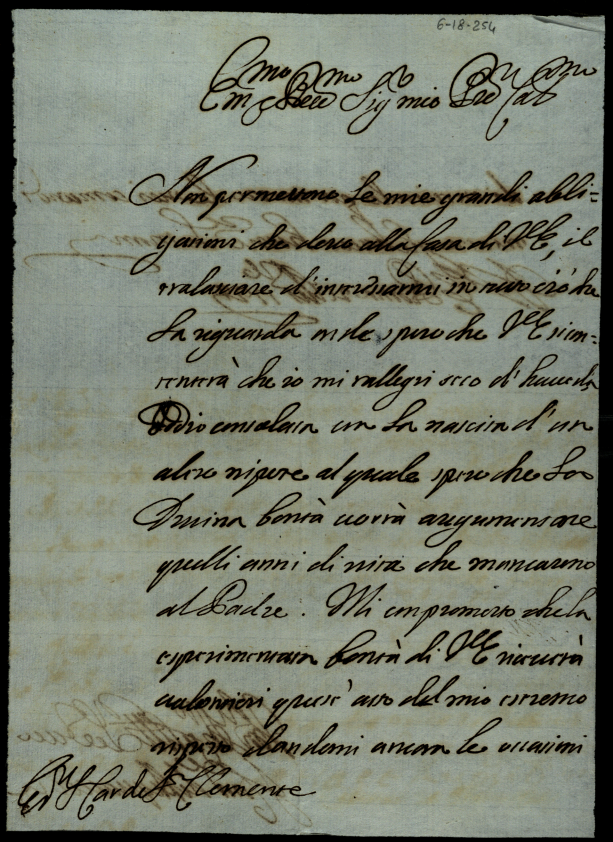 6-18-254
Em.mo e Rev.mo Sig.r mio P.ron Col.mo
Non permettono le mie grandi obbli=
gazioni che devo alla Casa di V.E, il
tralasciare d'interessarmi in tutto ciò che
la riguarda onde spero che V.E si con=
tenterà che io mi rallegri seco d'haverla
Iddio consolata con la nascita d'un
altro nipote al quale spero che la
Divina bontà vorrà augumentare
quelli anni di vita che mancarono
al Padre. Mi comprometto che la
esperimentata bontà di V.E riceverà
volontieri quest'atto del mio estremo
rispetto dandomi ancora le occasioni
Car de S. Clemente